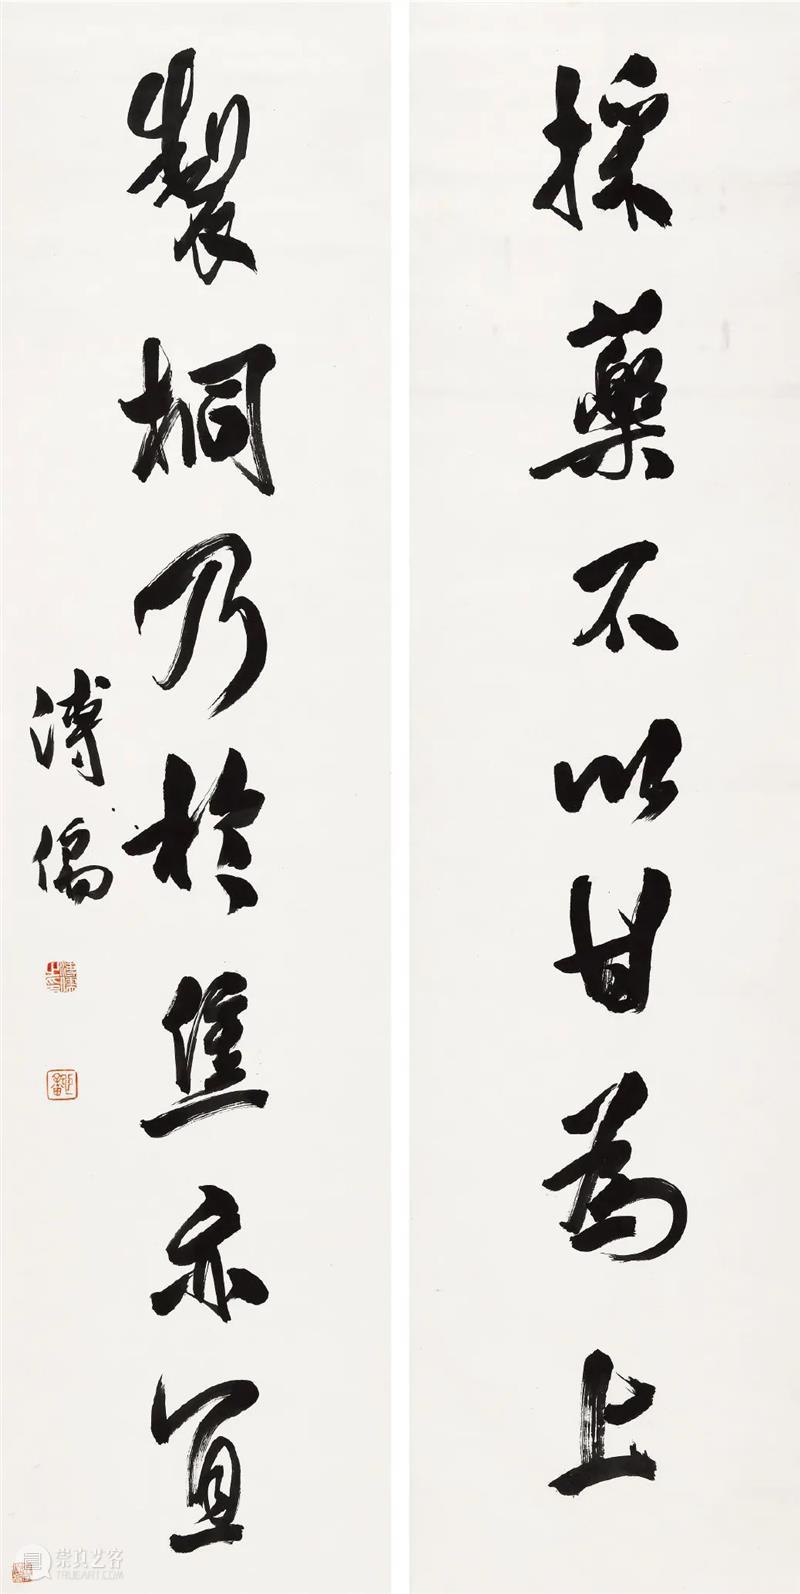 採藥不以甘為上
製桐乃於焦亦宜
溥儒
崇真艺客
TRUEART.COM